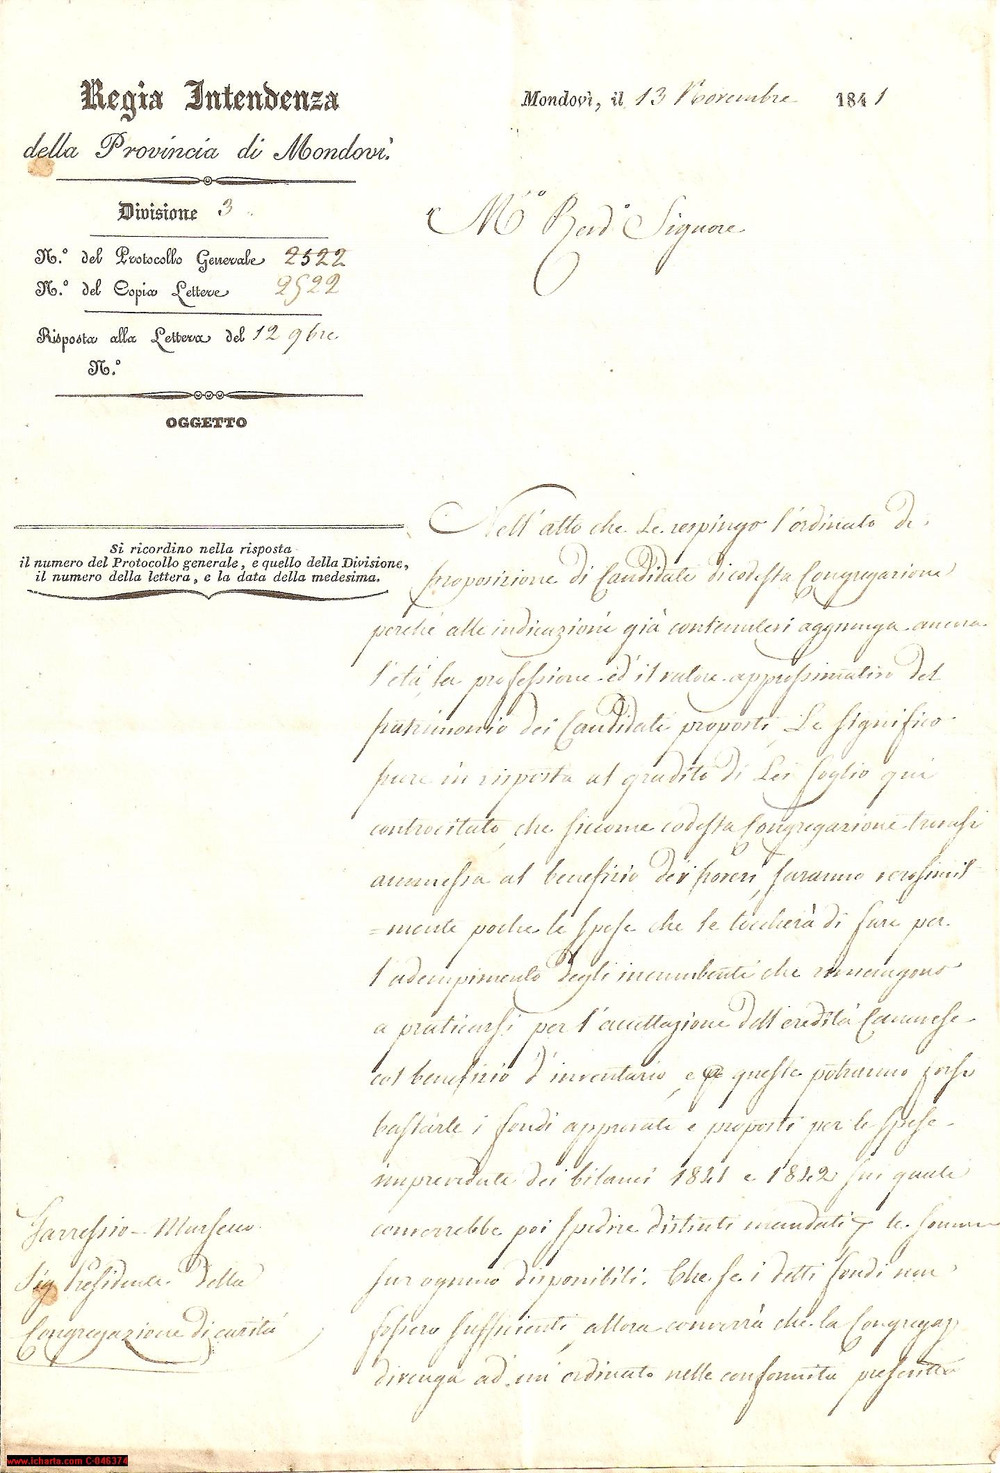 Regia Intendenza
della Provincia di Mondovì.
Divisione 3.
N.° del Protocollo Generale 2522
N.° del Copia Lettere 2522
Risposta alla Lettera del 12 9bre
N.°
OGGETTO
Si ricordino nella risposta
il numero del Protocollo generale, e quello della Divisione,
il numero della lettera, e la data della medesima.
Mondovì, il 13 Novembre 1841
M.° Rev.d° Signore
Nell'atto che Le respingo l'ordinato di
proposizione di Candidati di codesta Congregazione
perchè alle indicazioni già contenutevi aggiunga ancora
l'età, la professione ed il valore approssimativo del
patrimonio dei Candidati proposti, Le significo
pure in risposta al gradito di Lei foglio qui
controcitato, che siccome codesta Congregazione trovasi
ammessa al benefizio dei poveri, saranno verosimil=
=mente poche le spese che le toccherà di fare per
l'adempimento degli incumbenti che rimangono
a praticarsi per l'accettazione dell'eredità Cannese
col benefizio d'inventario, e per queste potranno forse
bastarle i fondi approvati e proposti per le spese
imprevedute dei bilanci 1841 e 1842 sui quali
converrebbe poi spedire distinti mandati per le somme
sur ognuno disponibili. Che se i detti fondi non
fossero sufficienti, allora converrà che la Congregaz.
divenga ad un ordinato nelle conformità prescritte
Garressio-
Sig. Presidente della
Congregazione di carità
www.icharta.com C-046374